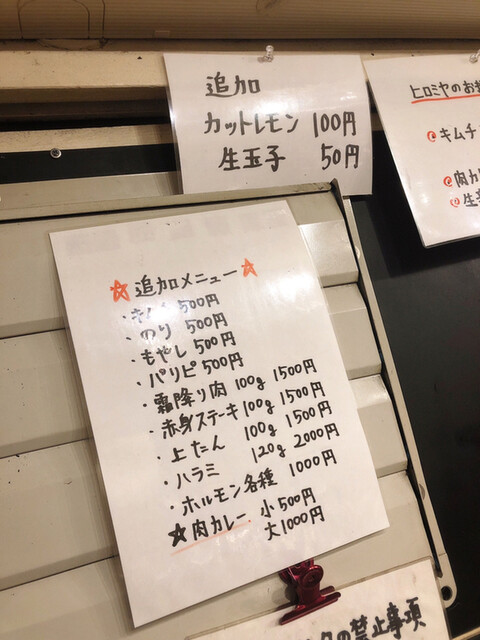 追加
カットレモン 100円
生玉子 50円
ヒロミヤのお
キムチ
肉カ
生
☆追加メニュー☆
・キムチ 500円
・のり 500円
・もやし 500円
・パリピ 500円
・霜降り肉 100g 1500円
・赤身ステーキ 100g 1500円
・上たん 100g 1500円
・ハラミ 120g 2000円
・ホルモン各種 1000円
☆肉カレー 小500円
大1000円
の禁止事項